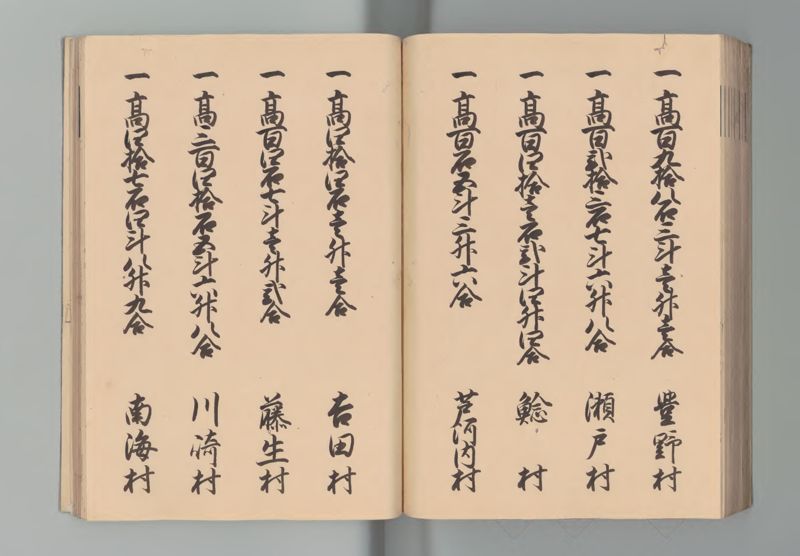 一髙百九拾八石三斗壱升壱合 豊野村
一髙百弐拾三石七斗六升八合 瀬戸村
一髙百四拾壱石弐斗四升四合 鯰村
一髙百石五斗三升六合 芦河内村
一髙四拾四石壱升壱合 吉田村
一髙百四石七斗壱升弐合 藤生村
一髙三百四拾石五斗六升八合 川崎村
一髙四拾七石四斗八升九合 南海村